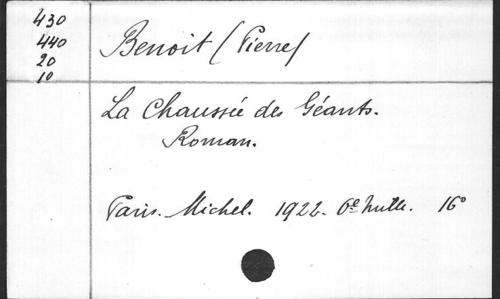 430
440
20
10
Benoit (Pierre)
La Chaussée des Géants.
Roman.
Paris. Michel. 1922. 6e mille. 16°